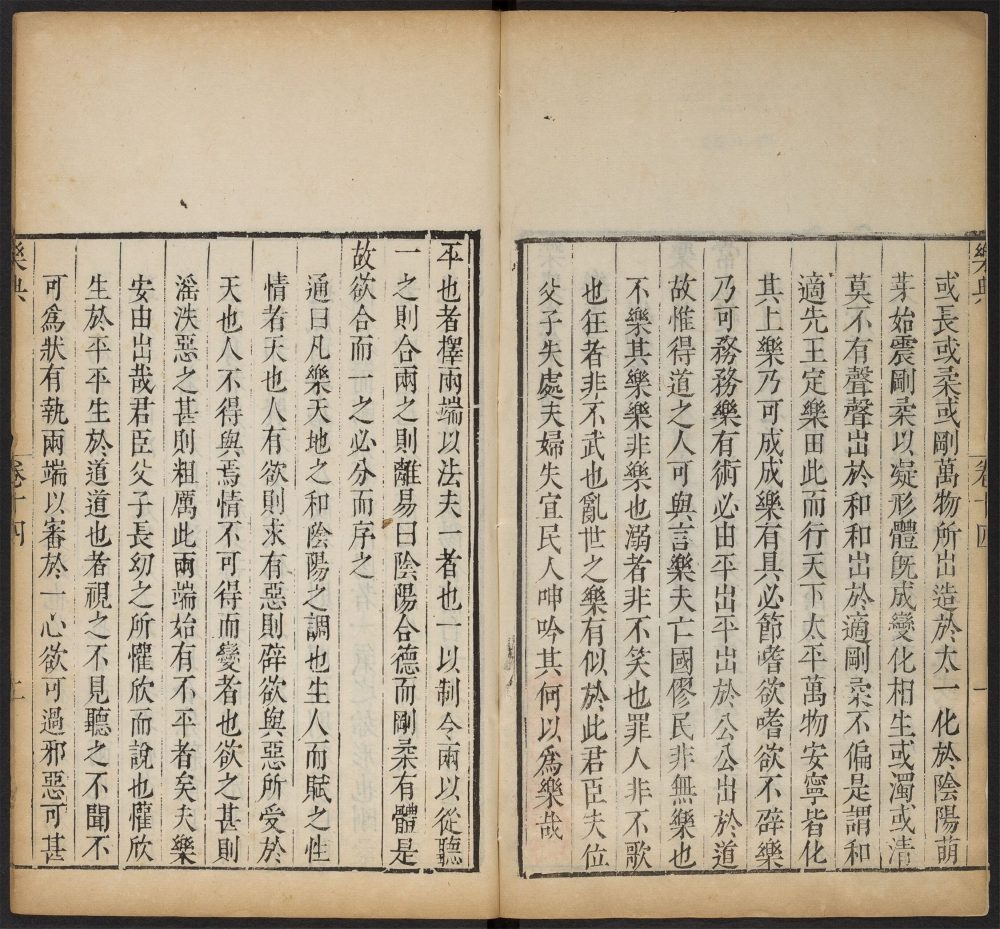 樂典
卷十四
一
或長或柔或剛萬物所出造於太一化於陰陽萌
芽始震剛柔以凝形體旣成變化相生或濁或清
莫不有聲聲出於和和出於適剛柔不偏是謂和
適先王定樂由此而行天下太平萬物安寧皆化
其上樂乃可成成樂有具必節嗜欲嗜欲不辟樂
乃可務務樂有術必由平出平出於公公出於道
故惟得道之人可與言樂夫亡國僇民非無樂也
不樂其樂樂非樂也溺者非不笑也罪人非不歌
也狂者非不武也亂世之樂有似於此君臣夫位
父子失處夫婦失宜民人呻吟其何以爲樂哉
平也者擇兩端以法夫一者也一以制令兩以從聽
一之則合兩之則離易曰陰陽合德而剛柔有體是
故欲合而一之必分而序之
通曰凡樂天地之和陰陽之調也生人而賦之性
情者天也人有欲則求有惡則辟欲與惡所受於
天也人不得與焉情不可得而變者也欲之甚則
滛泆惡之甚則粗厲此兩端始有不平者矣夫樂
安由出哉君臣父子長幼之所懽欣而說也懽欣
生於平平生於道道也者視之不見聽之不聞不
可爲狀有執兩端以審於一心欲可過邪惡可甚
樂典
卷十四
二